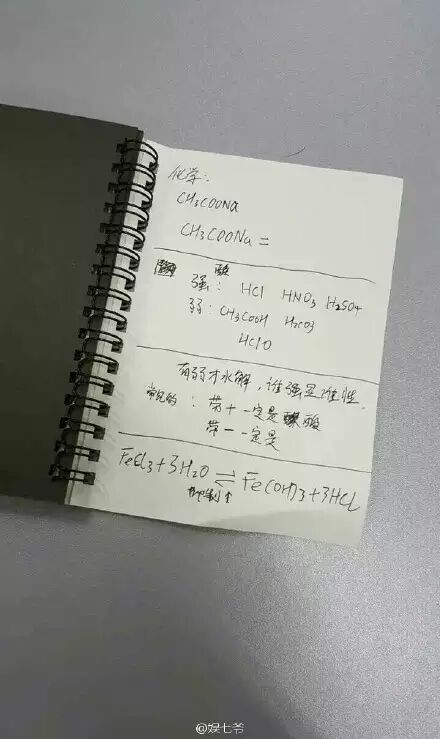 化学:
CH3COONa
CH3COONa =
酸
强: HCl HNO3 H2SO4
弱: CH3COOH H2CO3
HClO
有弱才水解,谁强显谁性.
常见的: 带+一定是酸
带-一定是
FeCl3+3H2O ⇌ Fe(OH)3+3HCl
抑制↑
@娱七爷